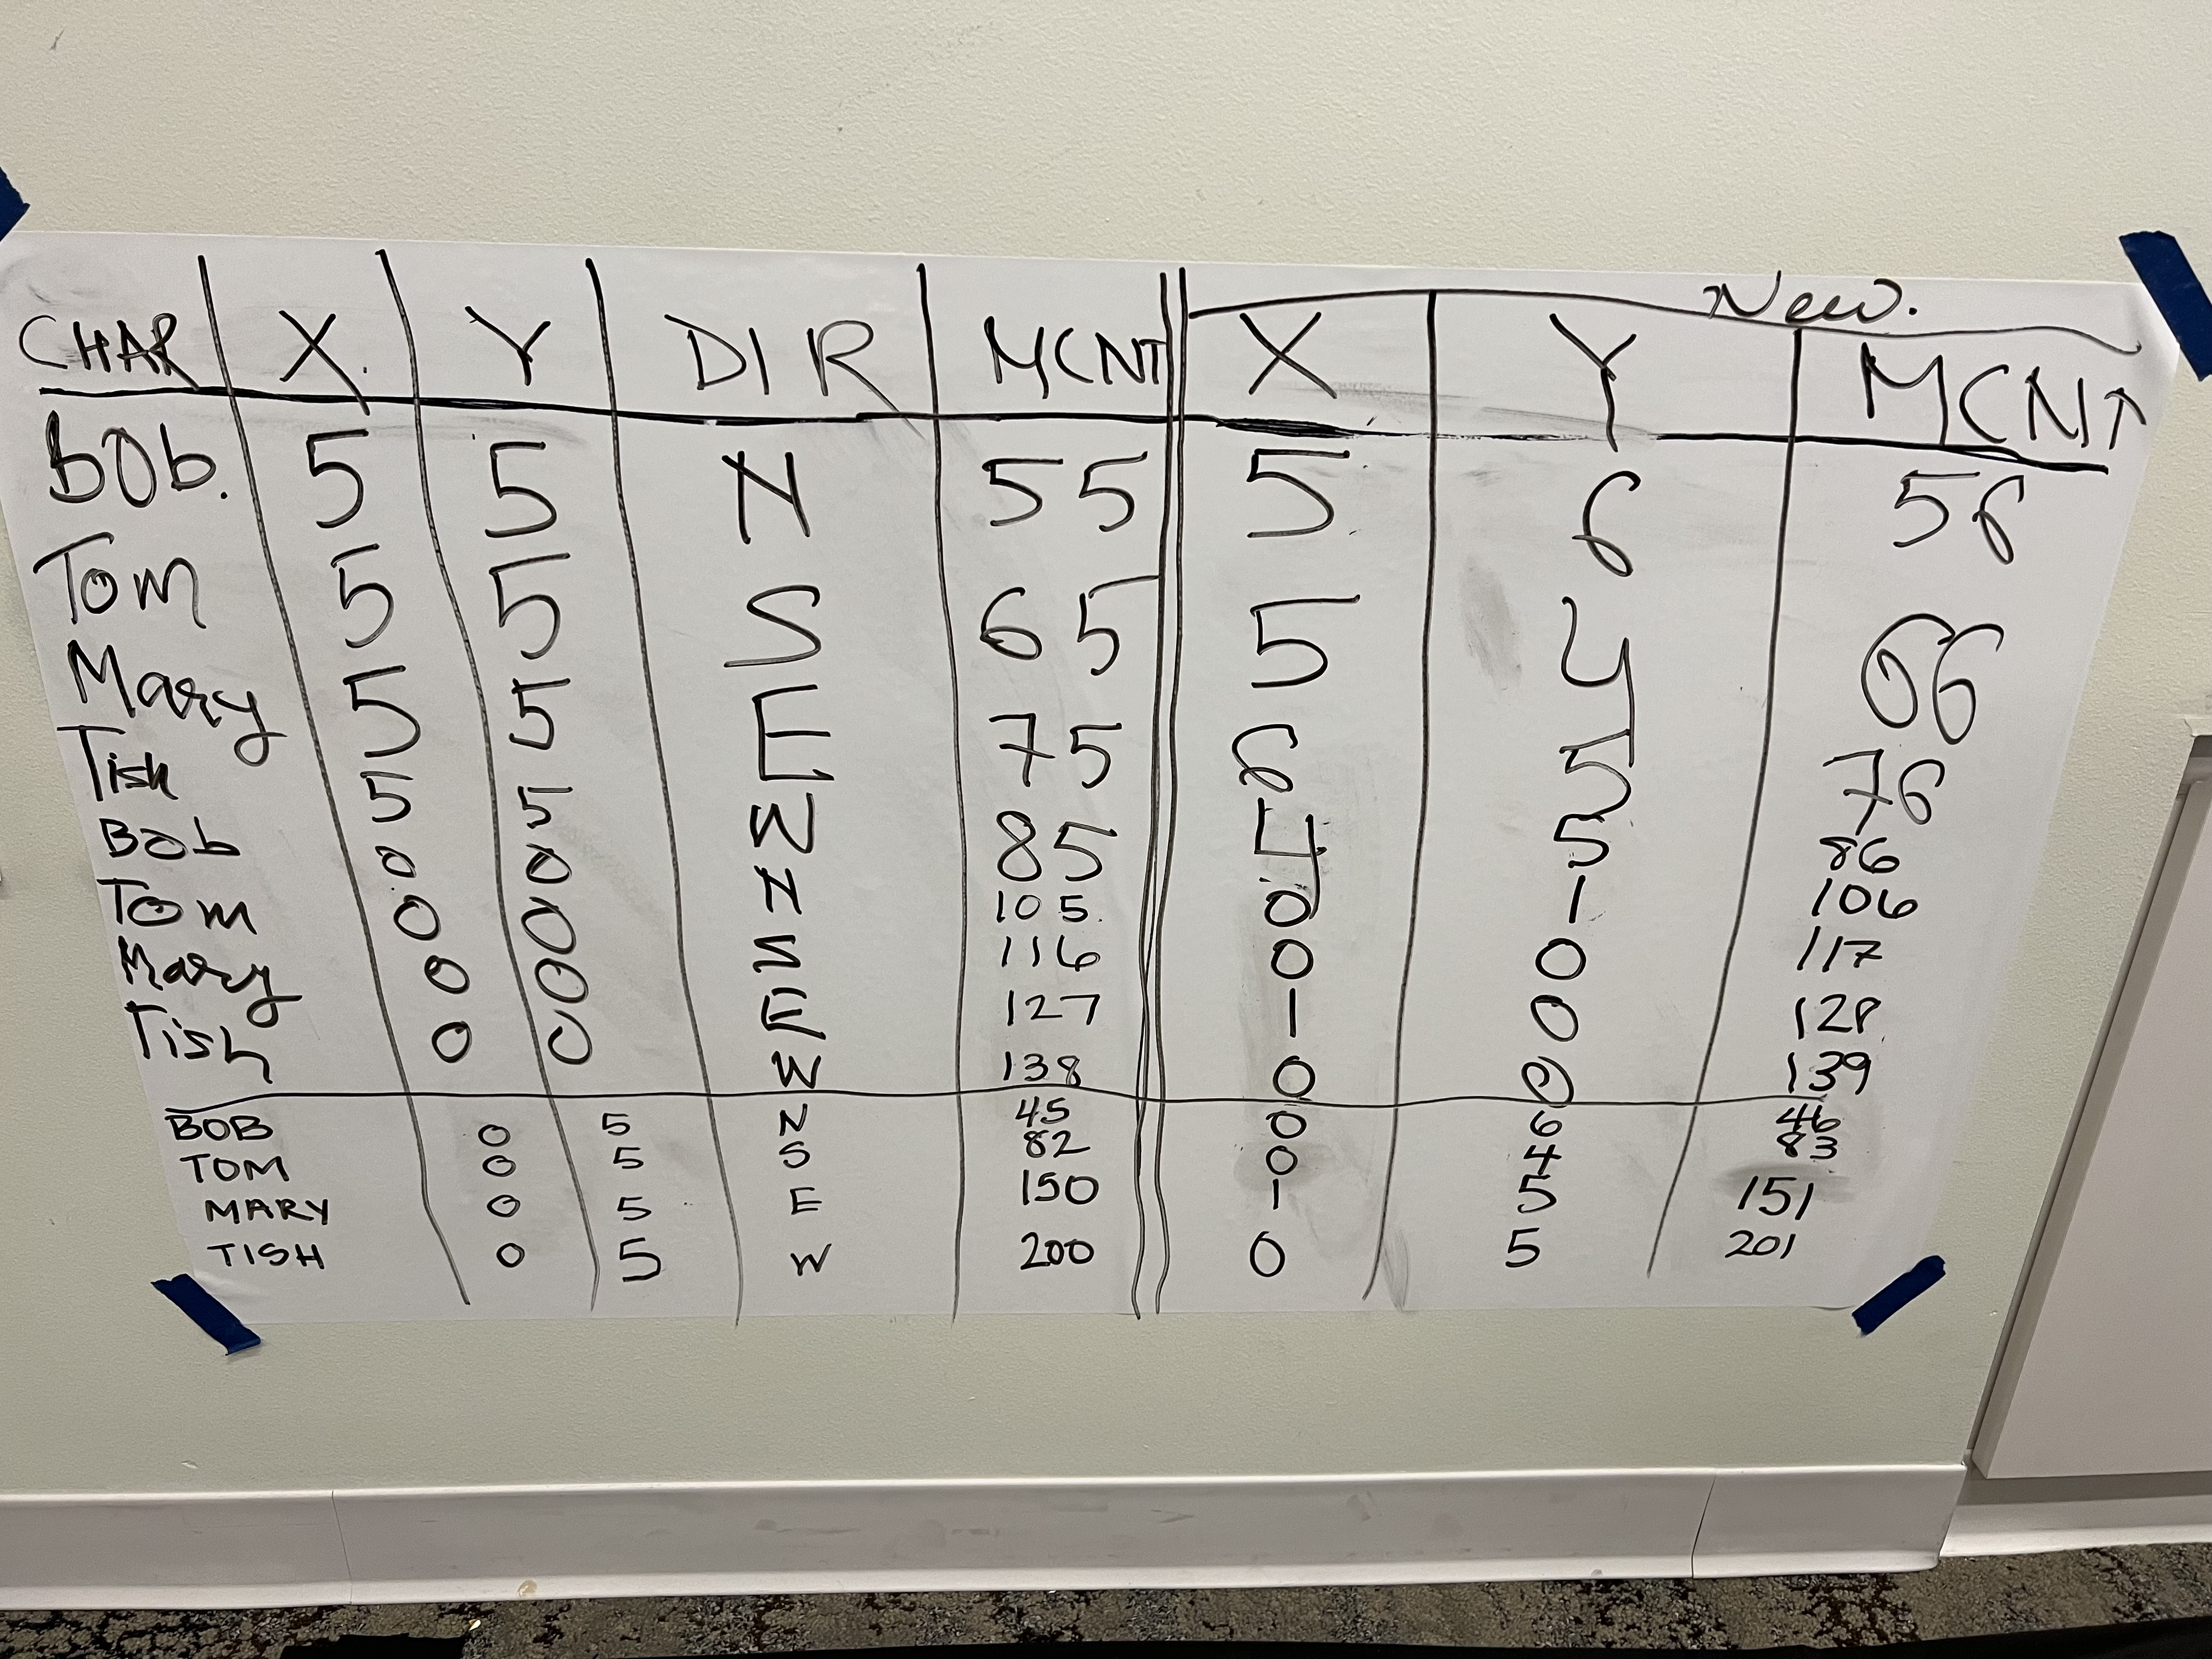 New.
CHAR X. Y DIR MCNT X Y MCNT
BOb. 5 5 N 55 5 6 56
Tom 5 5 S 65 5 4 66
Mary 5 5 E 75 6 5 76
Tish 5 5 W 85 4 5 86
Bob 0 0 N 105. 0 1 106
Tom 0 0 S 116 0 0 117
Mary 0 0 E 127 1 0 128
Tish 0 0 W 138 0 0 139
BOB 0 5 N 45 0 6 46
TOM 0 5 S 82 0 4 83
MARY 0 5 E 150 1 5 151
TISH 0 5 W 200 0 5 201